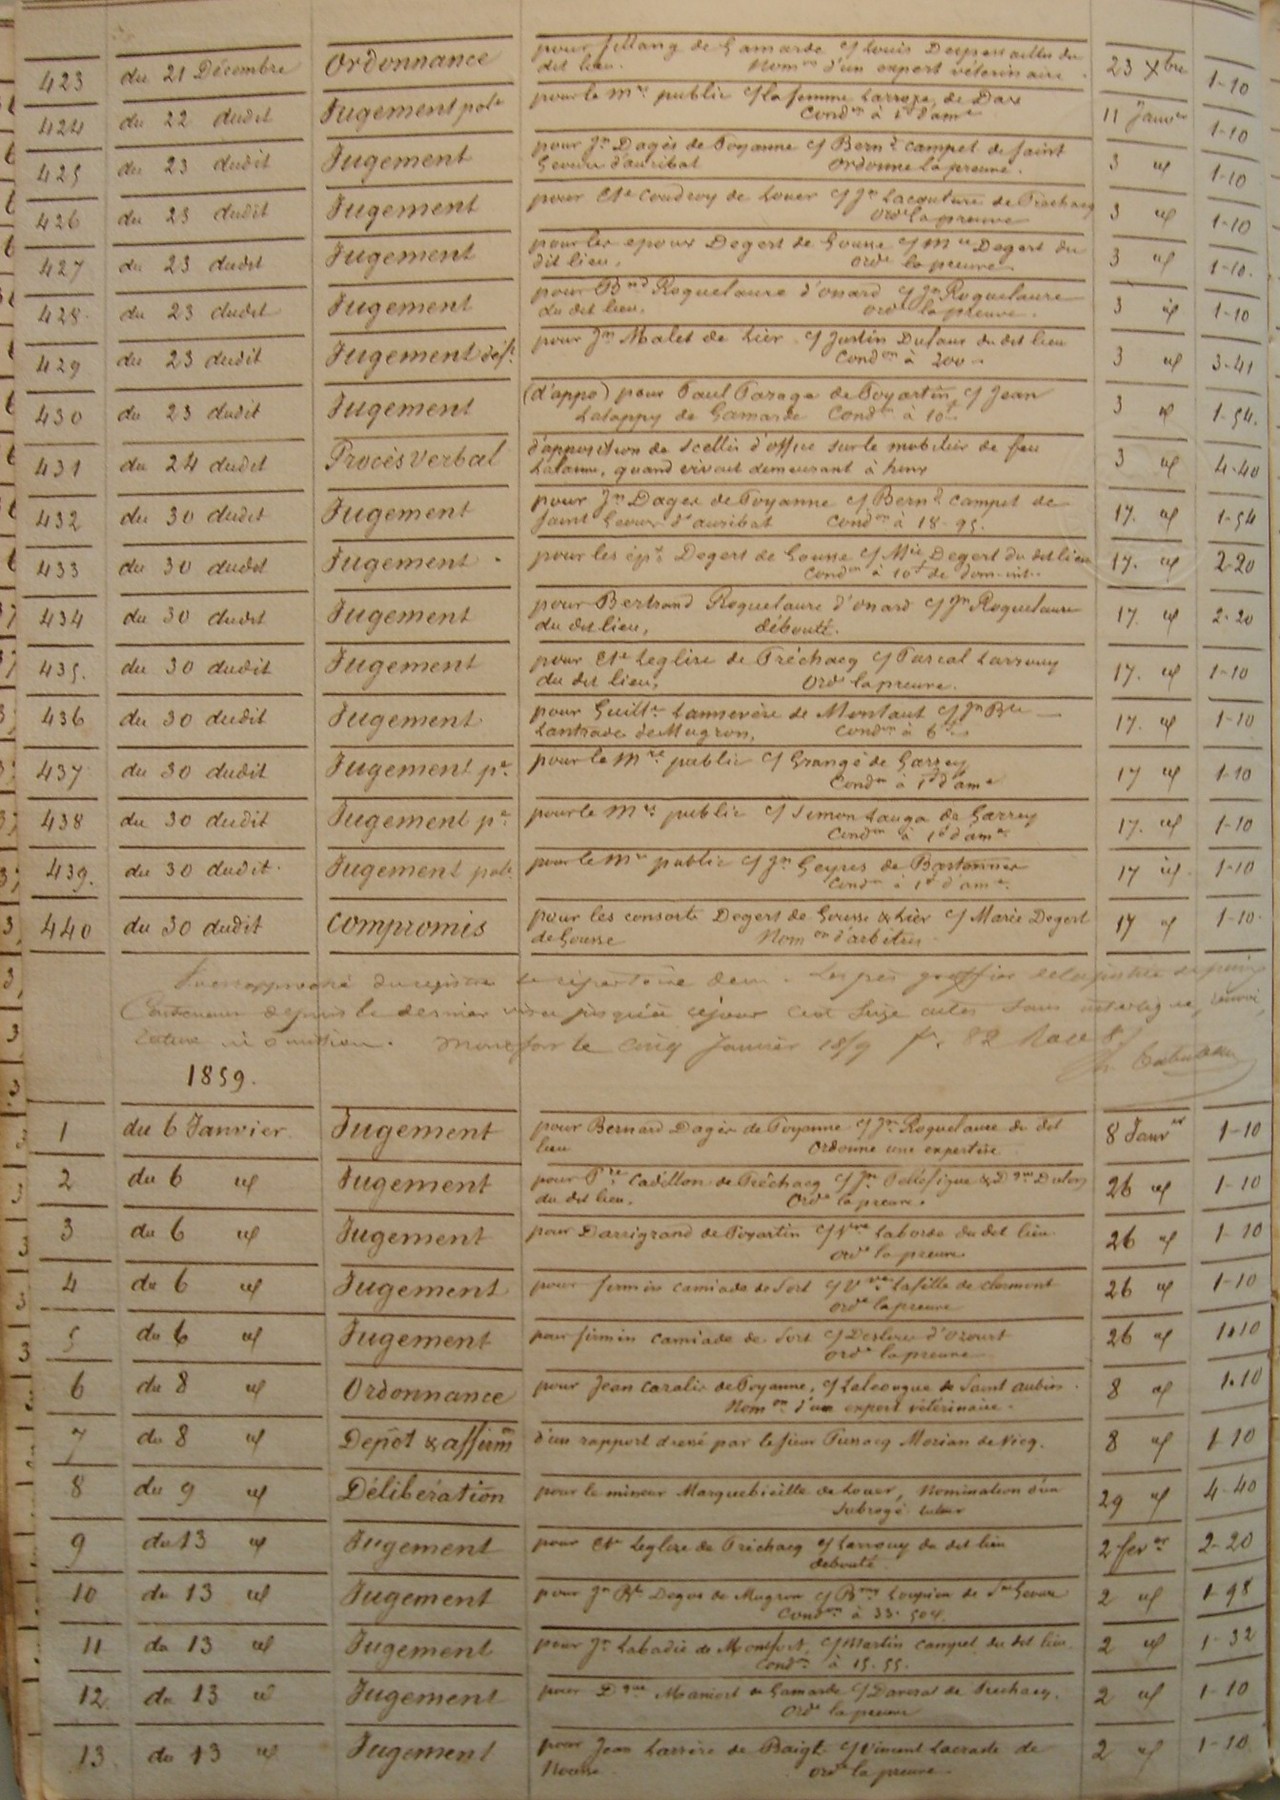 423 du 21 Décembre Ordonnance pour de Gamarde c/ Louis du
dit lieu. Nom.on d'un expert véterinaire. 23 Xbre 1-10
424 du 22 dudit Jugement pole pour le M.re public c/ la femme Larroze, de Dax
Cond.on à 1f d'am.e 11 Janv.er 1-10
425 du 23 dudit Jugement pour J.n Dagès de Poyanne c/ Bern.d Campet de Saint
Geours d'auribat Ordonne la preuve. 3 id 1-10
426 du 23 dudit Jugement pour Coudroy de Louer c/ J.n Lacouture de Préchacq
Ord.e la preuve 3 id 1-10
427 du 23 dudit Jugement pour les epoux Degert de Gousse c/ M.ie Degert du
dit lieu. Ord.e la preuve 3 id 1-10.
428. du 23 dudit Jugement pour B.nd Roquelaure d'onard c/ J.n Roquelaure
du dit lieu. Ord.e la preuve. 3 id 1-10
429 du 23 dudit Jugement déf.t pour J.n Malet de Lier c/ Justin Dufaur du dit lieu
Cond.on à 200 3 id 3-41
430 du 23 dudit Jugement (d'appo) pour Paul Parage de Poyartin c/ Jean
Latappy de Gamarde Cond.on à 10f 3 id 1-54.
431 du 24 dudit Procès verbal d'apposition de scellés d'office sur le mobilier de feu
Lalanne, quand vivait demeurant à hinx 3 id 4-40
432 du 30 dudit Jugement pour J.n Dagès de Poyanne c/ Bern.d Campet de
Saint Geours d'auribat Cond.on à 18-95. 17. id 1-54
433 du 30 dudit Jugement. pour les ép.x Degert de Gousse c/ M.ie Degert du dit lieu
Cond.on à 10f de dom-int. 17. id 2-20
434 du 30 dudit Jugement pour Bertrand Roquelaure d'onard c/ J.n Roquelaure
du dit lieu, débouté. 17. id 2-20
435. du 30 dudit Jugement pour Leglise de Préchacq c/ Pascal Larrouy
du dit lieu, Ord.e la preuve. 17. id 1-10
436 du 30 dudit Jugement pour Guill.e Lannevère de Montaut c/ J.n B.te
Lantrade de Mugron, Cond.on à 6f 17. id 1-10
437 du 30 dudit Jugement p.e pour le M.re public c/ Grangé de Garrey
Cond.on à 1f d'am.e 17 id 1-10
438 du 30 dudit Jugement p.e pour le M.re public c/ Simon Lauga de Garrey
Cond.on à 1f d'am.e 17. id 1-10
439. du 30 dudit. Jugement pole pour le M.re public c/ J.n Geyres de
Cond.on à 1f d'am.e. 17 id. 1-10
440 du 30 dudit Compromis pour les consorts Degert de Gousse & Lier c/ Marie Degert
de Gousse Nom.on d'arbitres 17 id 1-10.
répertoire greffier de la justice de paix
depuis le dernier visa jusqu'à ce jour seize actes sans interligne,
rature ni omission. Montfort le cinq Janvier 1859 f.o 82 case 8.
1859.
1 du 6 Janvier Jugement pour Bernard Dagès de Poyanne c/ J.n Roquelaure du dit
lieu Ordonne une expertise 8 Janv.er 1-10
2 du 6 id Jugement pour P.re Cadillon de Préchacq c/ J.n & D.que
du dit lieu. Ord.e la preuve. 26 id 1-10
3 du 6 id Jugement pour Darrigrand de Poyartin c/ V.ve Laborde du dit lieu
Ord.e la preuve 26 id 1-10
4 du 6 id Jugement pour firmin Camiade de Sort c/ Lafille de Clermont
Ord.e la preuve 26 id 1-10
5 du 6 id Jugement pour firmin Camiade de Sort c/ d'Ozourt
ord.e la preuve 26 id 1.10
6 du 8 id Ordonnance pour Jean de Poyanne, c/ Lalongue de Saint aubin.
Nom.on d'un expert vétérinaire. 8 id 1.10
7 du 8 id Dépôt & affirm.on d'un rapport dressé par le sieur Morian de Vicq. 8 id 1-10
8 du 9 id Délibération pour le mineur Marquebieille de Louer, Nomination d'un
Subrogé tuteur 29 id 4-40
9 du 13 id Jugement pour Leglise de Préchacq c/ Larrouy du dit lieu
débouté. 2 fev.er 2-20
10 du 13 id Jugement pour J.n B.te Degos de Mugron c/ Loupien de S.t Geours
Cond.on à 33. 50f. 2 id 1-98
11 du 13 id Jugement pour J.n Labadie de Montfort, c/ Martin Campet du dit lieu.
Cond.on à 15.55. 2 id 1-32
12 du 13 id Jugement pour D.que de Gamarde c/ de Préchacq.
Ord.e la preuve 2 id 1-10
13 du 13 id Jugement pour Jean Larrère de Baigts c/ Vincent de
Nousse. ord.e la preuve. 2 id 1-10